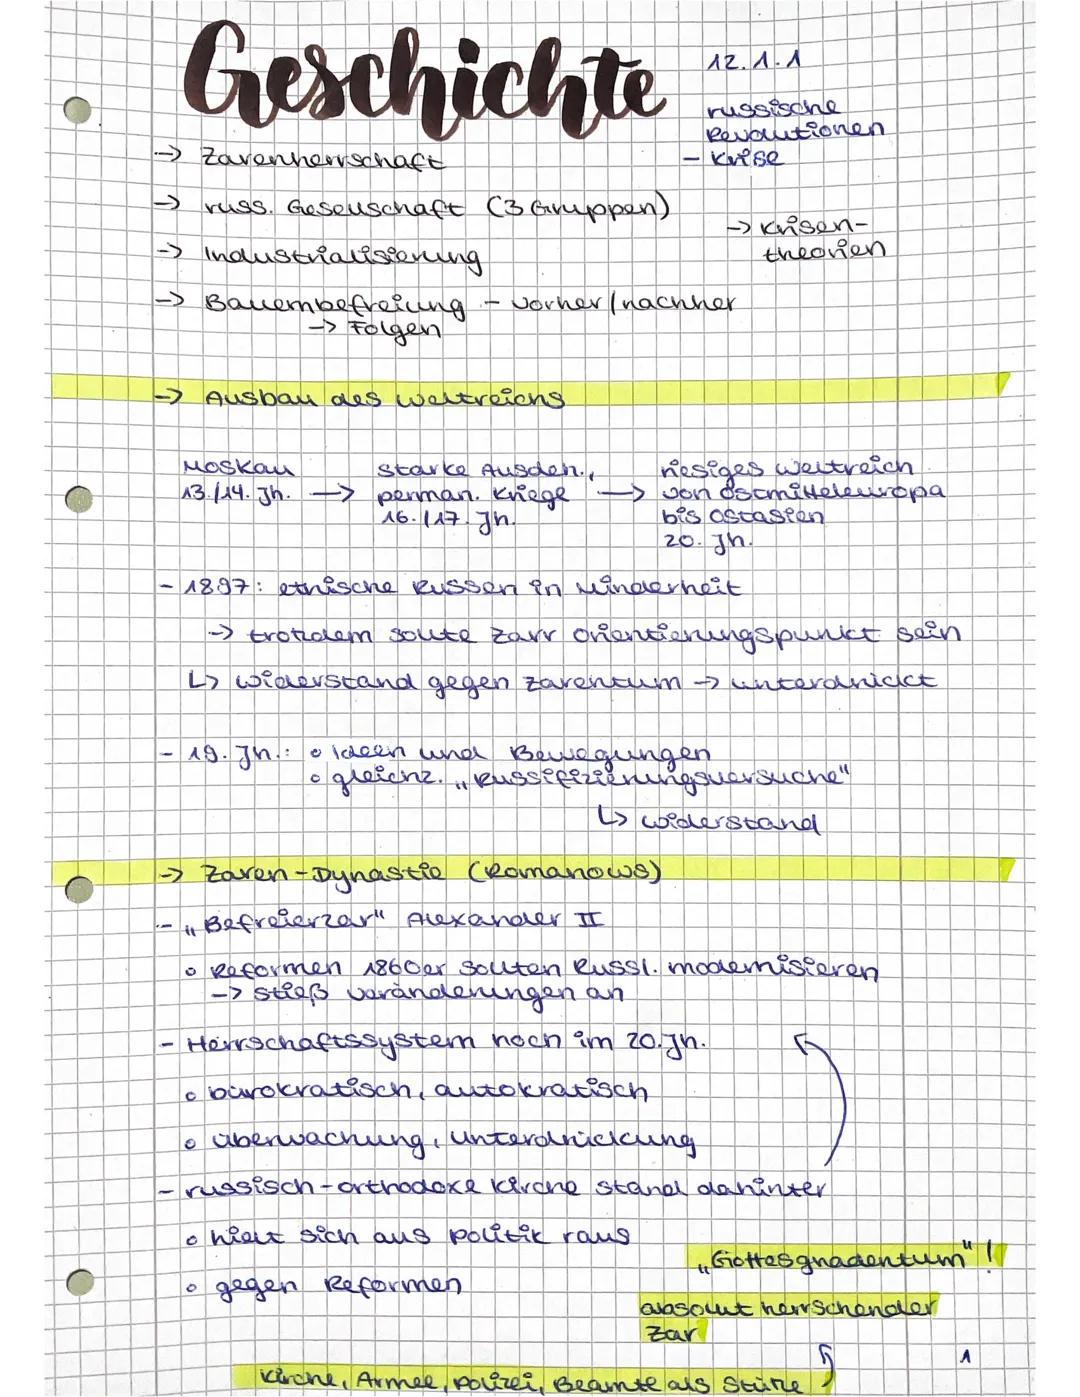 Geschichte
12.1.1
russische
Revolutionen
- Krise
-> Krisen-
theorien
-> Zarenherrschaft
-> russ. Gesellschaft (3 Gruppen)
-> Industrialisierung
-> Bauernbefreiung - vorher/nachher
-> Folgen
-> Ausbau des Weltreichs
Moskau
13./14. Jh. ->
starke Ausdeh.,
perman. Kriege ->
16./17. Jh.
riesiges Weltreich
von Ostmitteleuropa
bis Ostasien
20. Jh.
- 1897: ethnische Russen in Minderheit
-> trotzdem sollte Zarr Orientierungspunkt sein
↳ Widerstand gegen Zarentum -> unterdrückt
- 19. Jh.: o Ideen und Bewegungen
o gleichz. „Russifizierungsversuche"
↳ Widerstand
-> Zaren-Dynastie (Romanows)
- „Befreierzar" Alexander II
o Reformen 1860er sollten Russl. modernisieren
-> stieß Veränderungen an
- Herrschaftssystem noch im 20. Jh.
o bürokratisch, autokratisch
o Überwachung, Unterdrückung
- russisch-orthodoxe Kirche stand dahinter
o hielt sich aus Politik raus
o gegen Reformen
„Gottesgnadentum"!
absolut herrschender
Zar
Kirche, Armee, Polizei, Beamte als Stütze
1